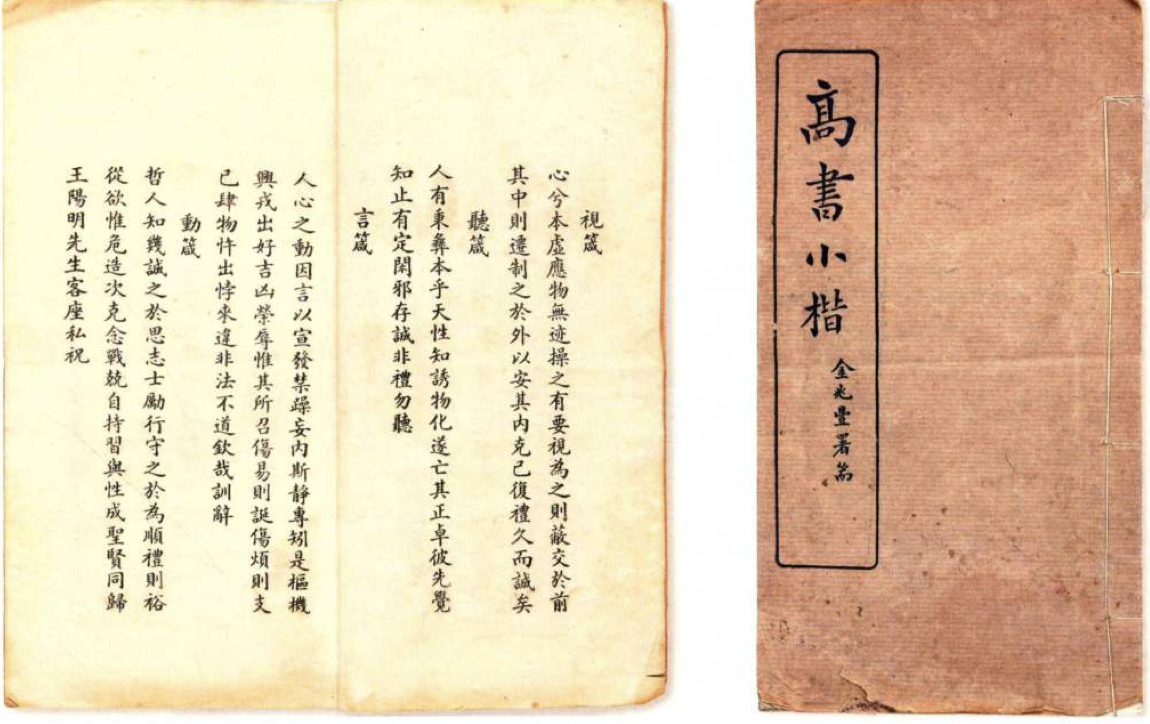 視箴
心兮本虛應物無迹操之有要視為之則蔽交於前
其中則遷制之於外以安其內克己復禮久而誠矣
聽箴
人有秉彝本乎天性知誘物化遂亡其正卓彼先覺
知止有定閑邪存誠非禮勿聽
言箴
人心之動因言以宣發禁躁妄內斯靜專矧是樞機
興戎出好吉凶榮辱惟其所召傷易則誕傷煩則支
已肆物忤出悖來違非法不道欽哉訓辭
動箴
哲人知幾誠之於思志士勵行守之於為順禮則裕
從欲惟危造次克念戰兢自持習與性成聖賢同歸
王陽明先生客座私祝
高書小楷
金兆豐署耑